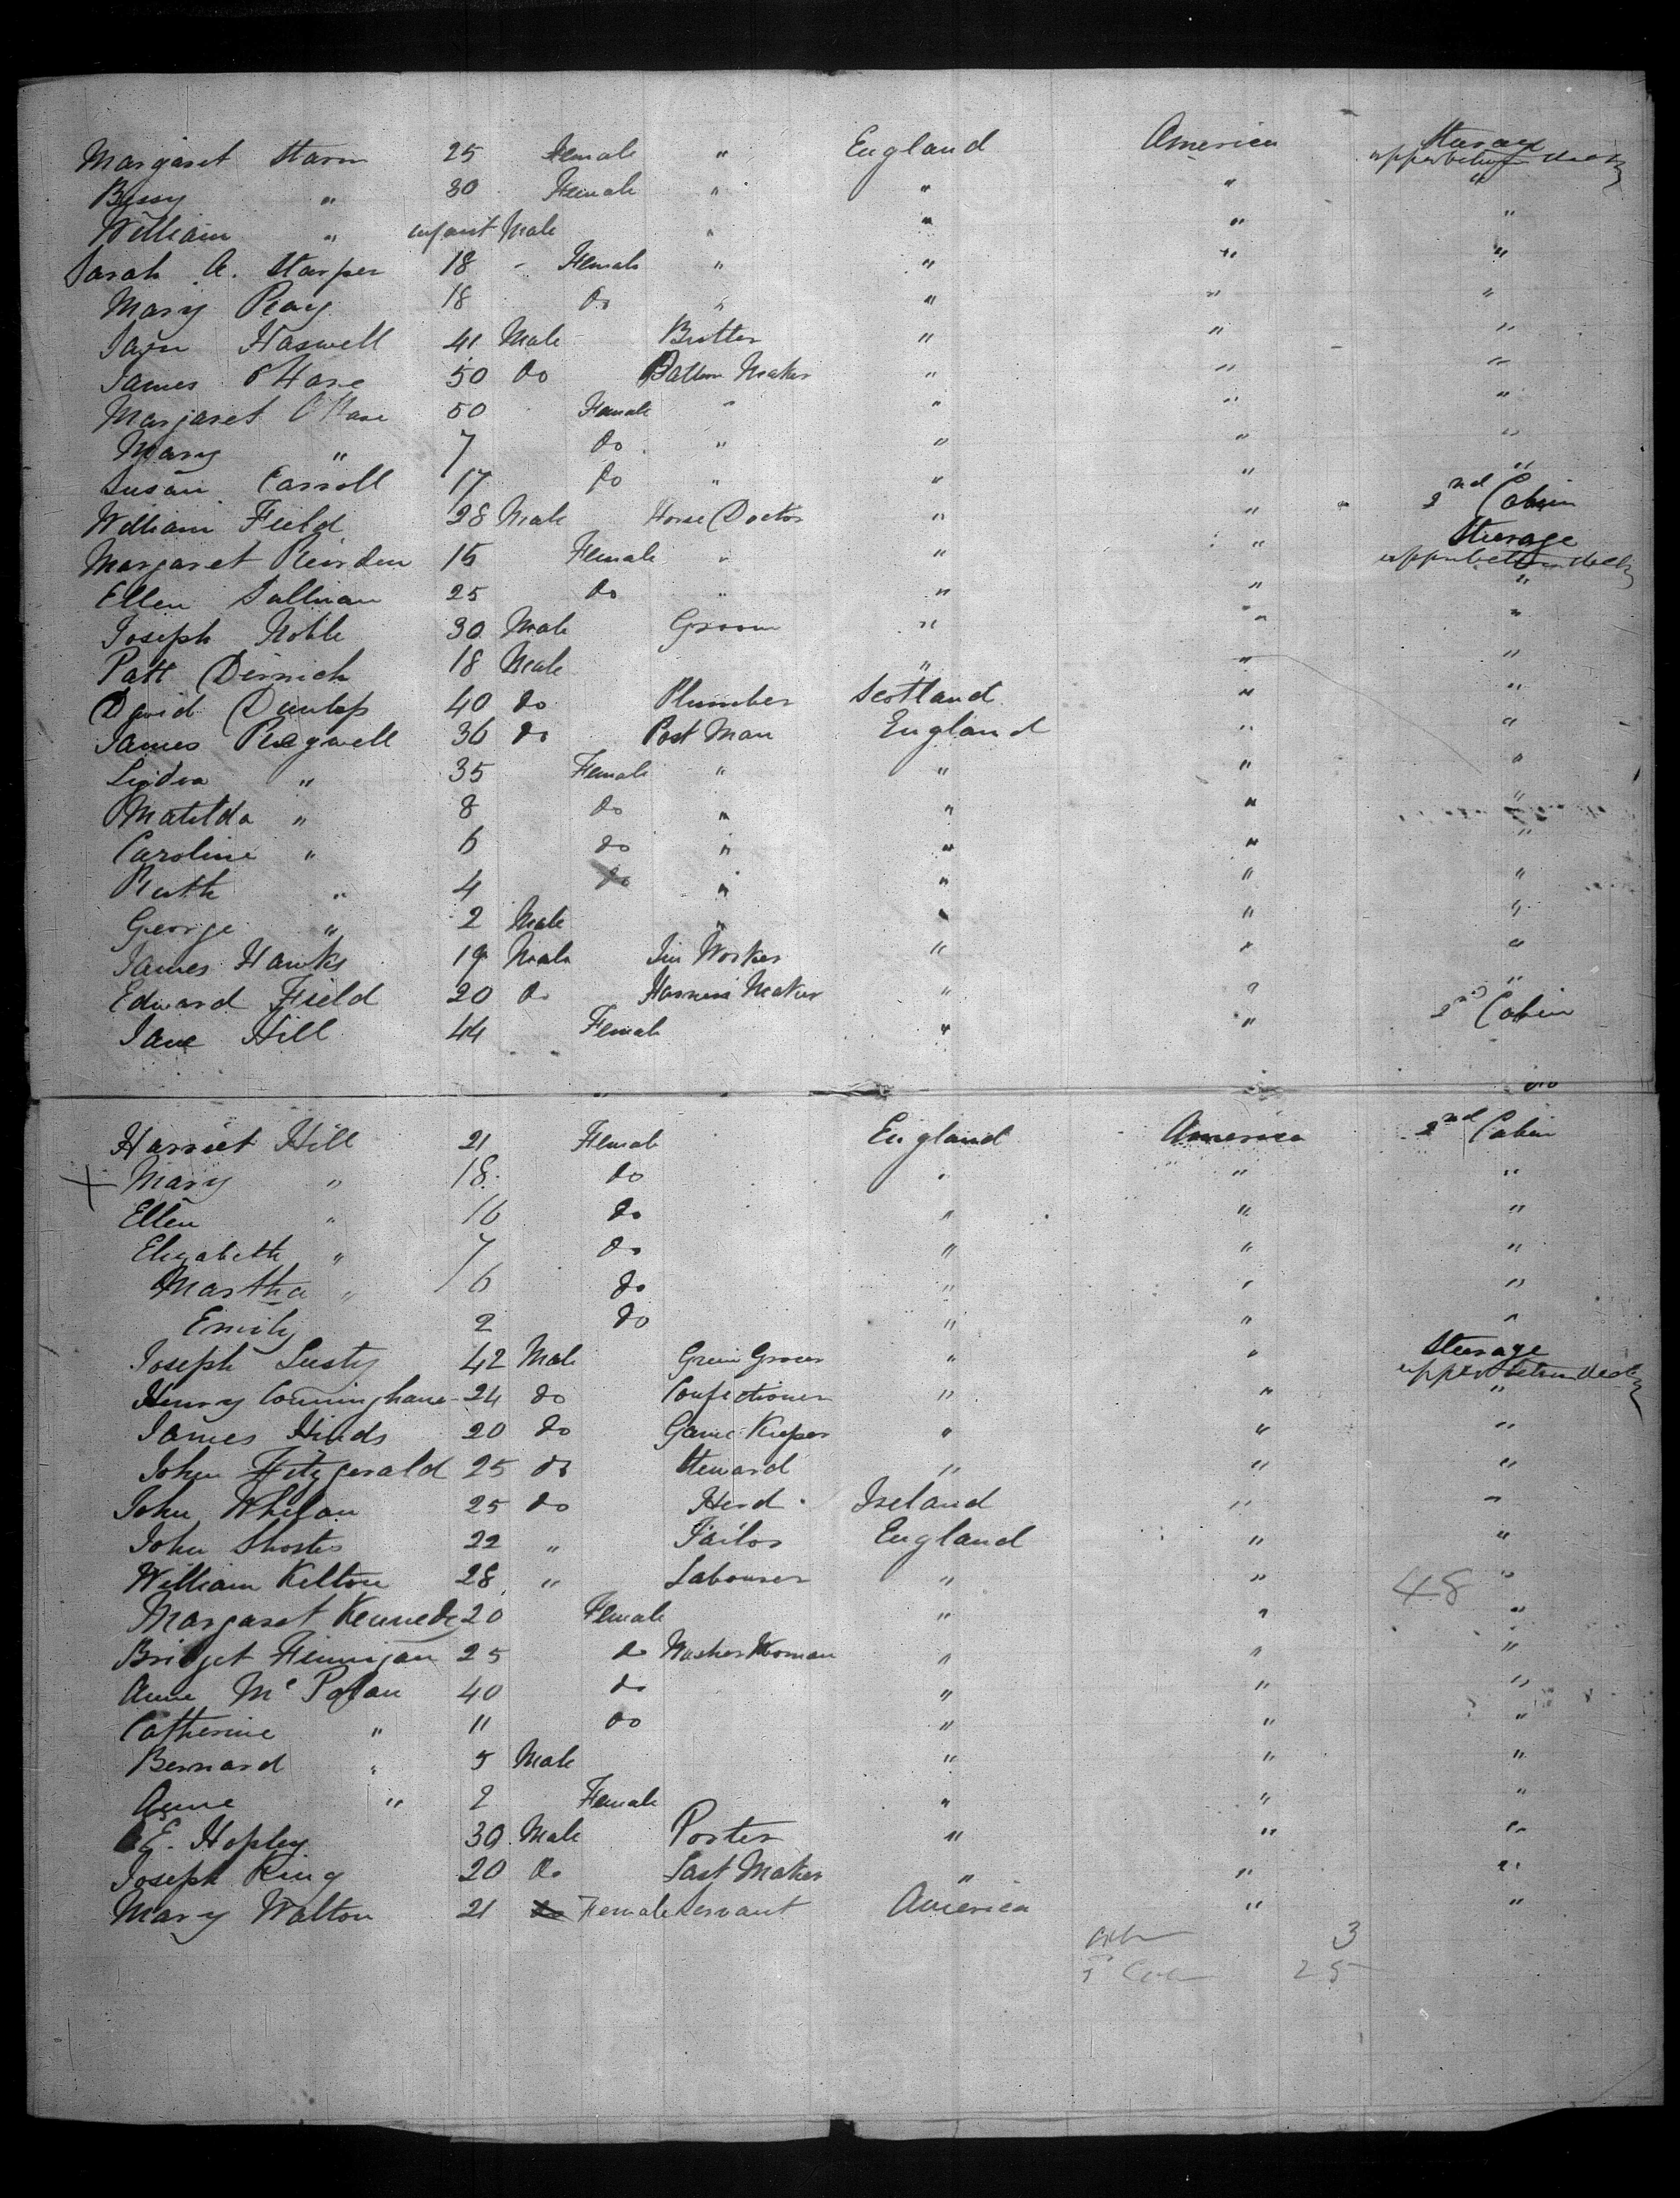 Margaret Starm 25 Female " England America Steerage
upper between decks
Bessy " 30 Female " " " "
William " infant Male " " " "
Sarah A. Harper 18 - Female " " " "
Mary Reay 18 do " " " "
John Haswell 41 Male Butler " " "
James O'Hare 50 do Pattern Maker " " "
Margaret O'Hare 50 Female " " " "
Mary " 7 do " " " "
Susan Carroll 17 do " " " "
William Field 28 Male Horse Doctor " " 2nd Cabin
Margaret Reirden 16 Female " " " Steerage
upper between decks
Ellen Sullivan 25 do " " " "
Joseph Noble 30 Male Groom " " "
Patt 18 Male " " "
David Dunlop 40 do Plumber Scotland " "
James Ridgwell 36 do Post Man England " "
Lydia " 35 Female " " " "
Matilda " 8 do " " " "
Caroline " 6 do " " " "
Ruth " 4 do " " " "
George " 2 Male " " " "
James Hawks 19 Male Tin Worker " " "
Edward Field 20 do Harness Maker " " "
Jane Hill 44 Female " " 2nd Cabin
Harriet Hill 21 Female England America 2nd Cabin
+ Mary " 18 do " " "
Ellen " 16 do " " "
Elizabeth " 7 do " " "
Martha " 6 do " " "
Emily 2 do " " "
Joseph Lusty 42 Male Green Grocer " " Steerage
upper between decks
Henry Conninghame 24 do Confectioner " " "
James Hinds 20 do Game Keeper " " "
John Fitzgerald 25 do Steward " " "
John Whelan 25 do Herd Ireland " "
John Shorten 22 " Tailor England " "
William Kelton 28 " Labourer " " "
48
Margaret Kennedy 20 Female " " "
Bridget Finnigan 25 do Washer Woman " " "
Anne Mc 40 do " " "
Catherine " 11 do " " "
Bernard " 5 Male " " "
Anne " 2 Female " " "
E. Hopley 30 Male Porter " " "
Joseph King 20 do Last Maker " " "
Mary Walton 21 do Female Servant America " "
3
25